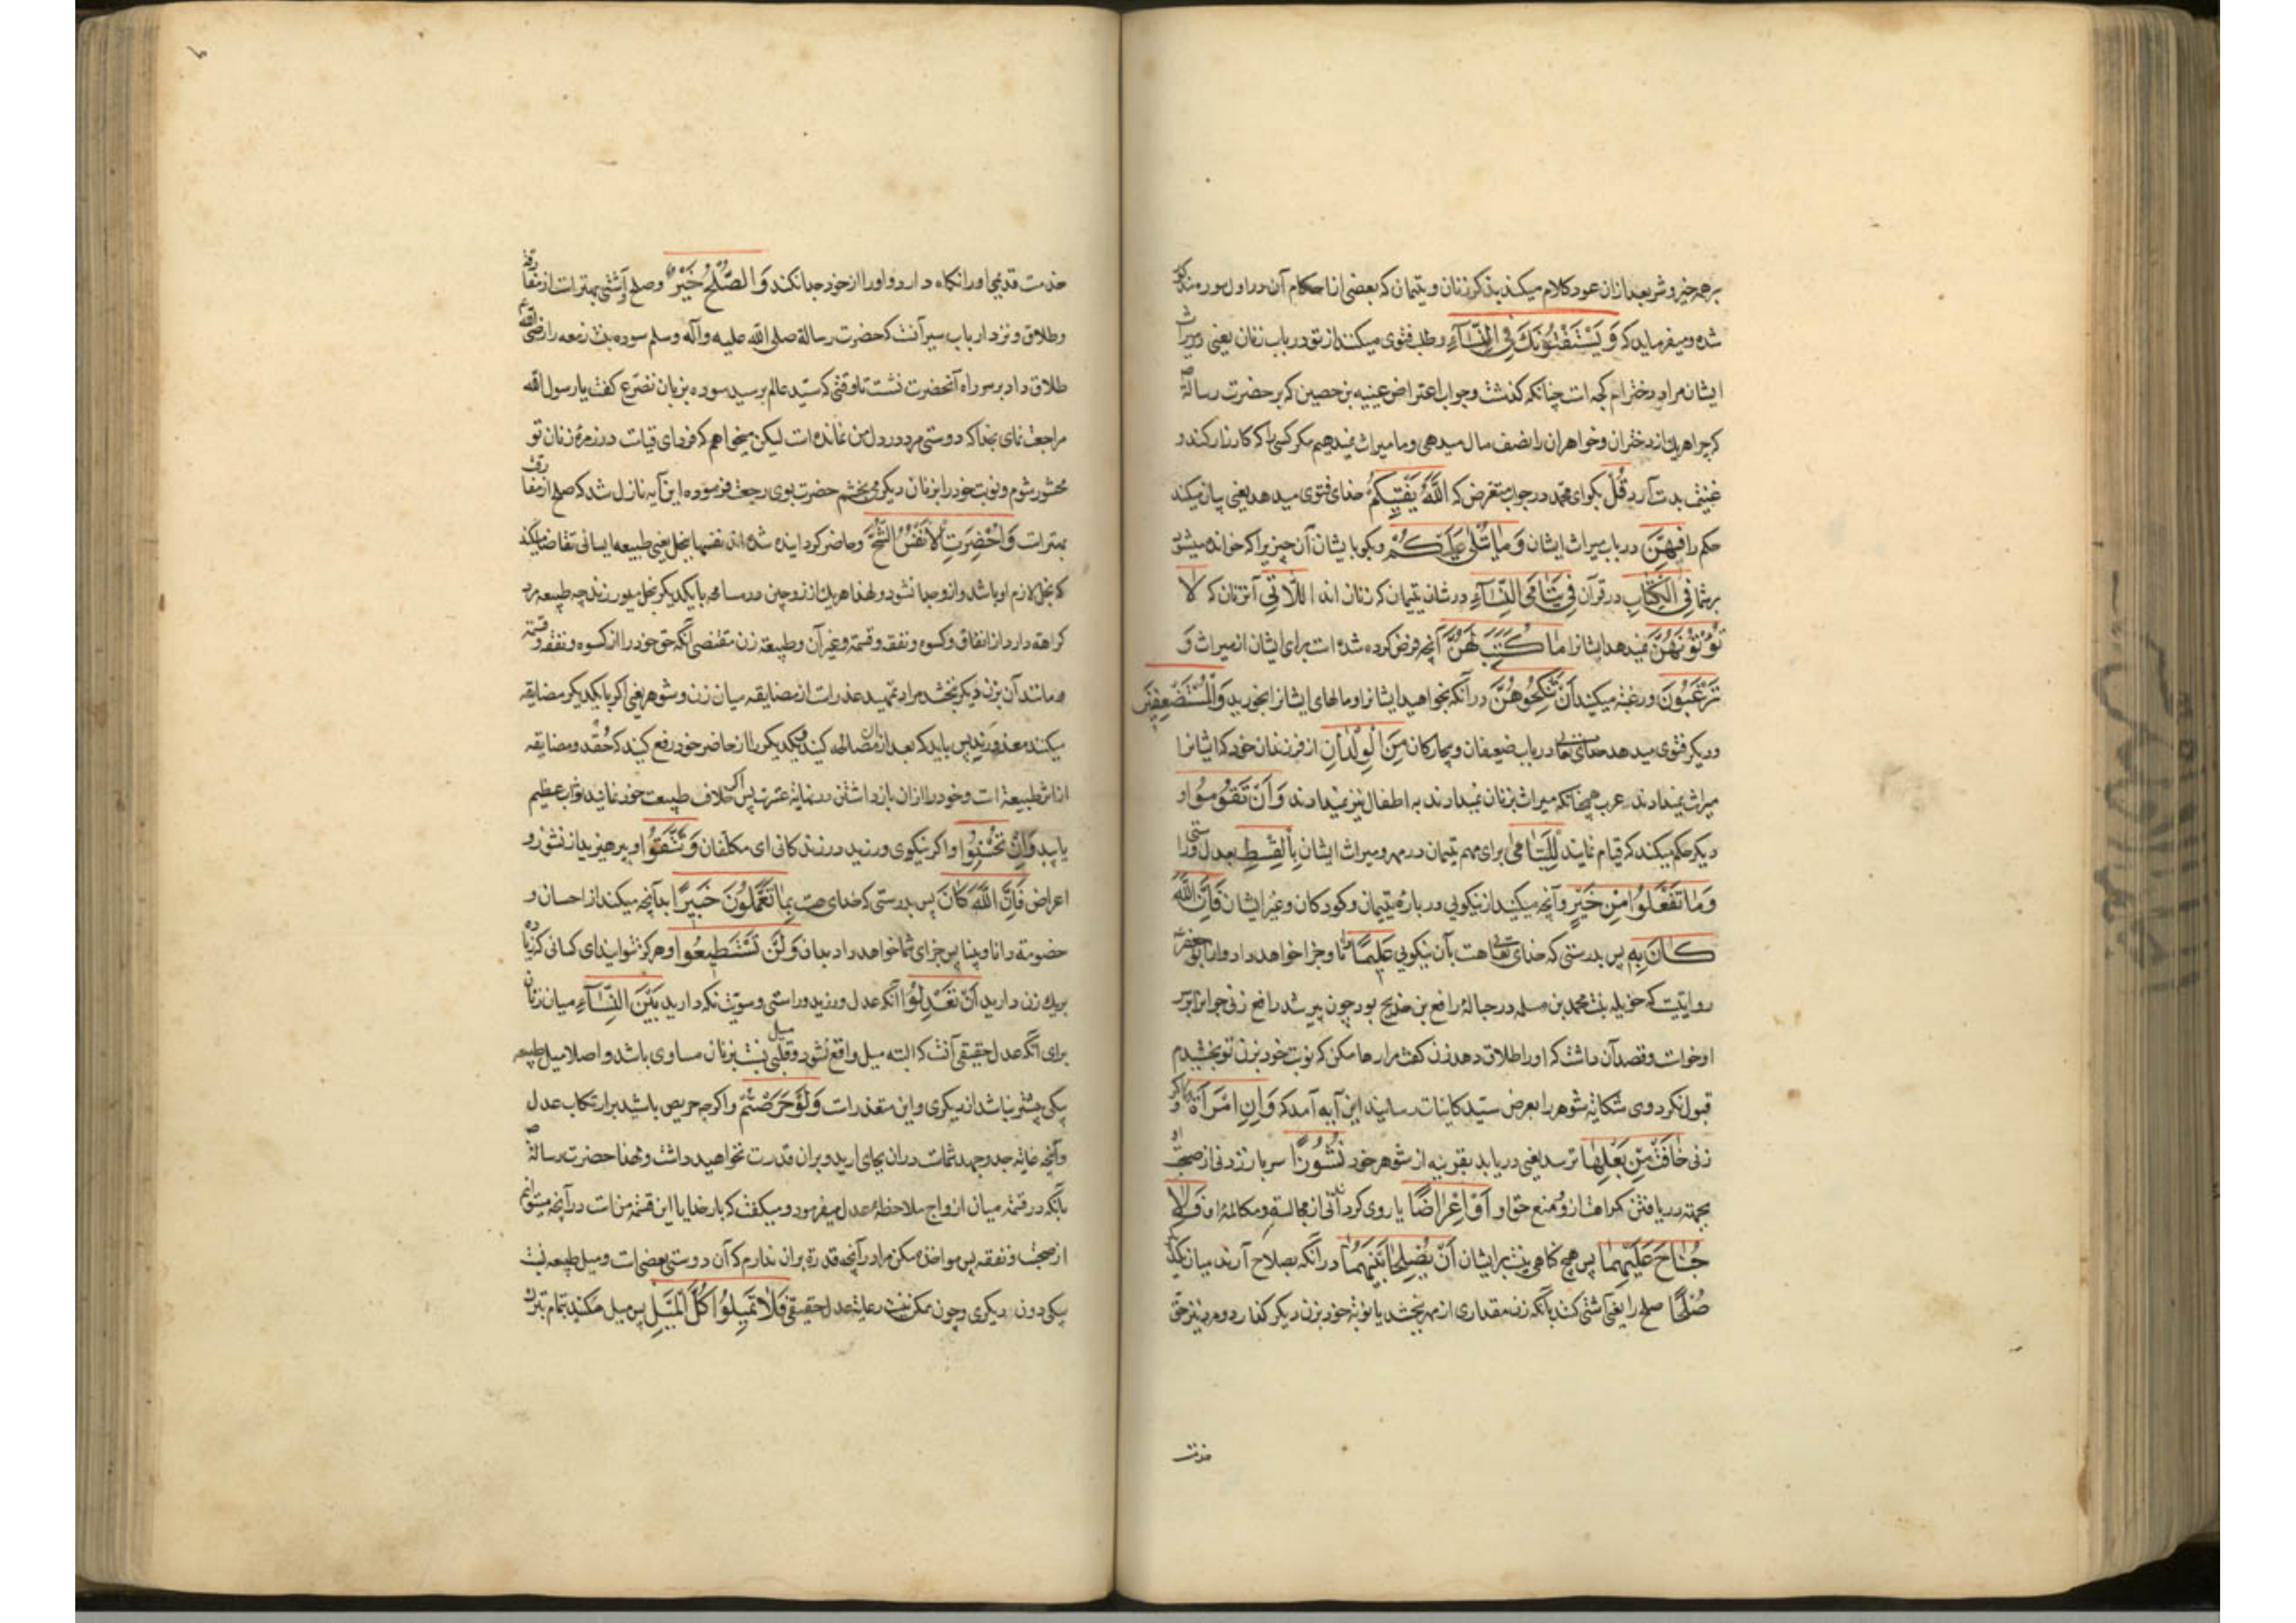 بر همه خیر و شر بعد ازان عود کلام میکند بذکر زنان و یتیمان که بعضی از احکام آن در اول سوره مذکور
شده و میفرماید که وَيَسْتَفْتُونَكَ فِي النِّسَآءِ و طلب فتوی میکنند از تو در باب زنان یعنی در میراث
ایشان مراد دختر ام کجه است چنانکه گذشت و جواب اعتراض عیینه بن حصین که بر حضرت رسالة ص
که چرا هر یک از دختران و خواهران را نصف مال میدهی و ما میراث نمیدهیم مکر کسی را که کارزار کند و
غنیمت بدست آرد قُلْ بکو ای محمد در جواب متعرض که اللَّهُ يُفْتِيكُمْ خدای فتوی میدهد یعنی بیان میکند
حکم را فِيهِنَّ در باب میراث ایشان وَمَا يُتْلَى عَلَيْكُمْ و بکو با ایشان آن چیز را که خوانده میشود
بر شما فِي الْكِتَابِ در قرآن فِي يَتَامَى النِّسَآءِ در شان یتیمان که زنان اند اللَّاتِي آن زنان که لَا
تُؤْتُونَهُنَّ نمیدهد ایشانرا مَا كُتِبَ لَهُنَّ آنچه فرض کرده شده است برای ایشان از میراث وَ
تَرْغَبُونَ و رغبة میکنید أَنْ تَنْكِحُوهُنَّ در آنکه بخواهید ایشانرا و مالهای ایشانرا بخورید وَالْمُسْتَضْعَفِينَ
و دیکر فتوی میدهد خدای تعالی در باب ضعیفان و بیچارکان مِنَ الْوِلْدَانِ از فرزندان خود که ایشانرا
میراث نمیدادند عرب همچنانکه میراث بزنان نمیدادند به اطفال نیز نمیدادند وَأَنْ تَقُومُوا و
دیکر حکم میکند که قیام نمایند لِلْيَتَامَى برای مهم یتیمان در مهر و میراث ایشان بِالْقِسْطِ بعدل و راستی
وَمَا تَفْعَلُوا مِنْ خَيْرٍ و آنچه میکنید از نیکویی در باره یتیمان و کودکان و غیر ایشان فَإِنَّ اللَّهَ
كَانَ بِهِ پس بدرستی که خدای تعالی هست بآن نیکویی عَلِيمًا دانا و جزا خواهد داد و از ابو جعفر
روایتست که خویله بنت محمد بن مسلمه در حباله رافع بن خدیج بود چون پیر شد رافع زنی جوانتر بر سر
او خواست و قصد آن داشت که او را طلاق دهد زن کفت مرا رها مکن که نوبت خود بزن تو بخشیدم
قبول نکرد وی شکایة شوهر را بعرض سید کاینات رسانید این آیه آمد که وَإِنِ امْرَأَةٌ و اکر
زنی خَافَتْ مِنْ بَعْلِهَا ترسد یعنی دریابد بقرینه از شوهر خود نُشُوزًا سر باز زدنی از صحبت او
بجهته دریافتن کراهت ازو و منع حق او أَوْ إِعْرَاضًا یا روی کردانی از مجالست و مکالمه او فَلَا
جُنَاحَ عَلَيْهِمَا پس هیچ کناهی نیست بر ایشان أَنْ يُصْلِحَا بَيْنَهُمَا در آنکه بصلاح آرند میان یکدیکر
صُلْحًا صلح را یعنی آشتی کنند بآنکه زن مقداری از مهر ببخشد یا نوبة خود بزن دیکر کذارد و مرد نیز حق
خدمت
خدمت قدیمی او را نکاه دارد و او را از خود جدا نکند وَالصُّلْحُ خَيْرٌ و صلح و آشتی بهتر است از مفارقة
و طلاق و نزد ارباب سیر آنست که حضرت رسالة صلی الله علیه و آله و سلم سوده بنت زمعه را رضی الله عنها
طلاق داد بر سر راه آنحضرت نشست تا وقتی که سید عالم برسید سوده بزبان تضرع کفت یا رسول الله
مراجعت نمای بخدا که دوستی مرد در دل من نمانده است لیکن میخواهم که فردای قیامت در زمره زنان تو
محشور شوم و نوبت خود را بزنان دیکر می بخشم حضرت بوی رجعت فرموده این آیه نازل شد که صلح از مفارقت
بهتر است وَأُحْضِرَتِ الْأَنْفُسُ الشُّحَّ و حاضر کردانیده شده اند نفسها ببخل یعنی طبیعه انسانی تقاضا میکند
که بخل لازم او باشد و ازو جدا نشود و لهذا هر یک از زوجین در مسامحه با یکدیکر بخل میورزند چه طبیعه مرد
کراهة دارد از انفاق و کسوه و نفقه و قسمة و غیر آن و طبیعة زن مقتضی آنکه حق خود را از کسوه و نفقه و قسمة
و مانند آن بزن دیکر نبخشد مراد تمهید عذر است از مضایقه میان زن و شوهر یعنی اکر با یکدیکر مضایقه
میکنند معذورند پس باید که بعد ازان مصالحه کنند و یکدیکر را از حاضر خود رفع کنند که حقد و مضایقه
از اثر طبیعة است و خود را ازان باز داشتن در نهایة عسرت پس اکر خلاف طبیعت خود نمایند ثواب عظیم
یابید وَإِنْ تُحْسِنُوا و اکر نیکوی ورزید در زندکانی ای مکلفان وَتَتَّقُوا و بپرهیزید از نشوز و
اعراض فَإِنَّ اللَّهَ كَانَ پس بدرستی که خدای هست بِمَا تَعْمَلُونَ خَبِيرًا بدآنچه میکنید از احسان و
خصومة دانا و بینا پس جزای شما خواهد داد بدان وَلَنْ تَسْتَطِيعُوا و هرکز نتوانید ای کسانی که زیاده
بر یک زن دارید أَنْ تَعْدِلُوا آنکه عدل ورزید و راستی و سویت نکه دارید بَيْنَ النِّسَآءِ میان زنان
برای آنکه عدل حقیقی آنست که البته میل واقع نشود و میل قلبی نسبت بزنان مساوی باشد و اصلا میل طبیعه
بیکی بیشتر نباشد از دیکری و این متعذر است وَلَوْ حَرَصْتُمْ و اکرچه حریص باشید بر ارتکاب عدل
و آنچه غایة جد و جهد شماست دران بجای ارید و بران قدرت نخواهید داشت و لهذا حضرت رسالة ص
بآنکه در قسمة میان ازواج ملاحظه عدل میفرمود و میکفت که بار خدایا این قسمة من است در آنچه میتوانم
از صحبت و نفقه پس مواخذه مکن مرا در آنچه قدرة بران ندارم که آن دوستی بعضی است و میل طبیعه نسبت
بیکی دون دیکری و چون ممکن نیست رعایة عدل حقیقی فَلَا تَمِيلُوا كُلَّ الْمَيْلِ پس میل مکنید تمام